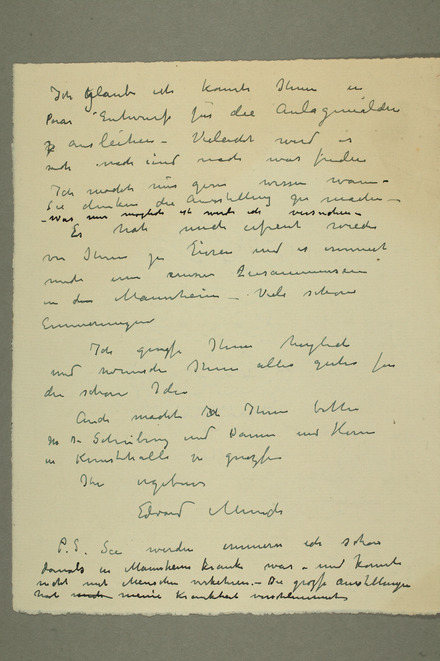 Ich glaube ich konnte Ihnen ein
Paar Entwürfe für die Aulagemälde
ausleihen – Vieleicht wird es
sich nach und nach was finden
Ich möchte nur gern wissen wann –
Sie denken die Ausstellung zu machen –
– Was mir möglich ist werde ich versuchen –
Es hat mich erfreut wieder
von Ihnen zu hören und es erinnert
mich an unser Zusammensein
in dem Mannheim – Viele schöne
Erinnerungen
Ich grüsse Ihnen herzlich
und wünsche Ihnen alles gutes für
die schöne Idee
Auch möchte Ich Ihnen bitte
und Damen und Herrn
in Kunsthalle zu grüssen
Ihr ergebener
Edvard Munch
P.S. Sie werden erinnern ich schon
damals in Mannheim krank war – und konnte
nicht mit Menschen verkehren – Die grosse Austellungen
hat meine Krankheit verschlimmert